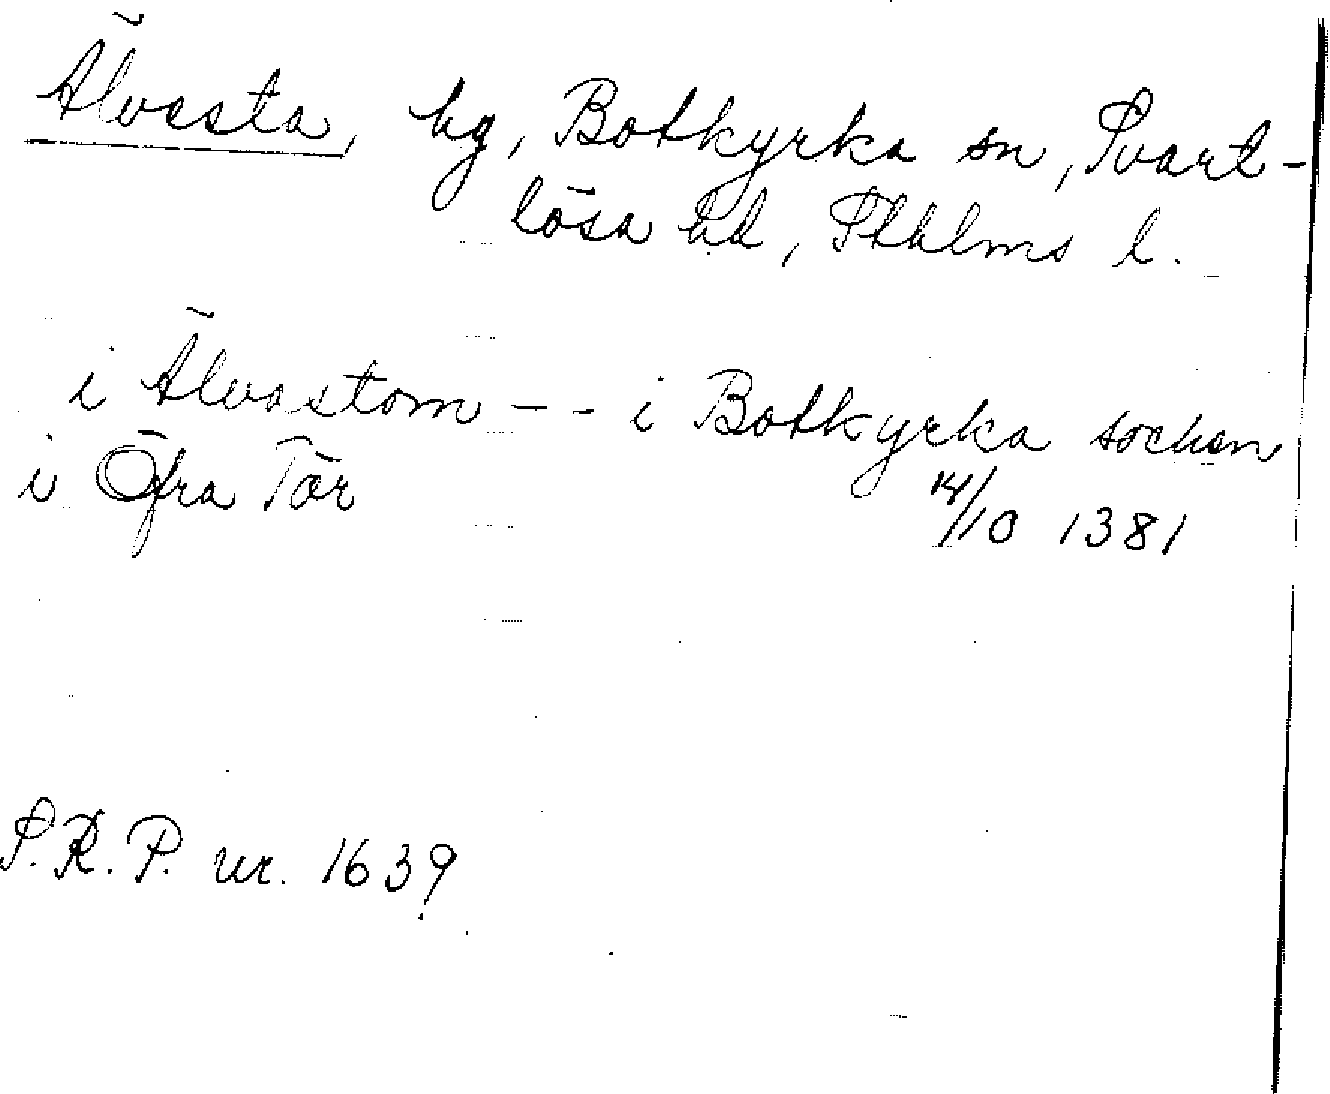 Älvesta, bg, Botkyrka sn, Svart-
lösa hd, Sthlms l.
i Älvastom -- i Botkyrka sochen
i Öfra Tör
14/10 1381
S.R.P. nr. 1639